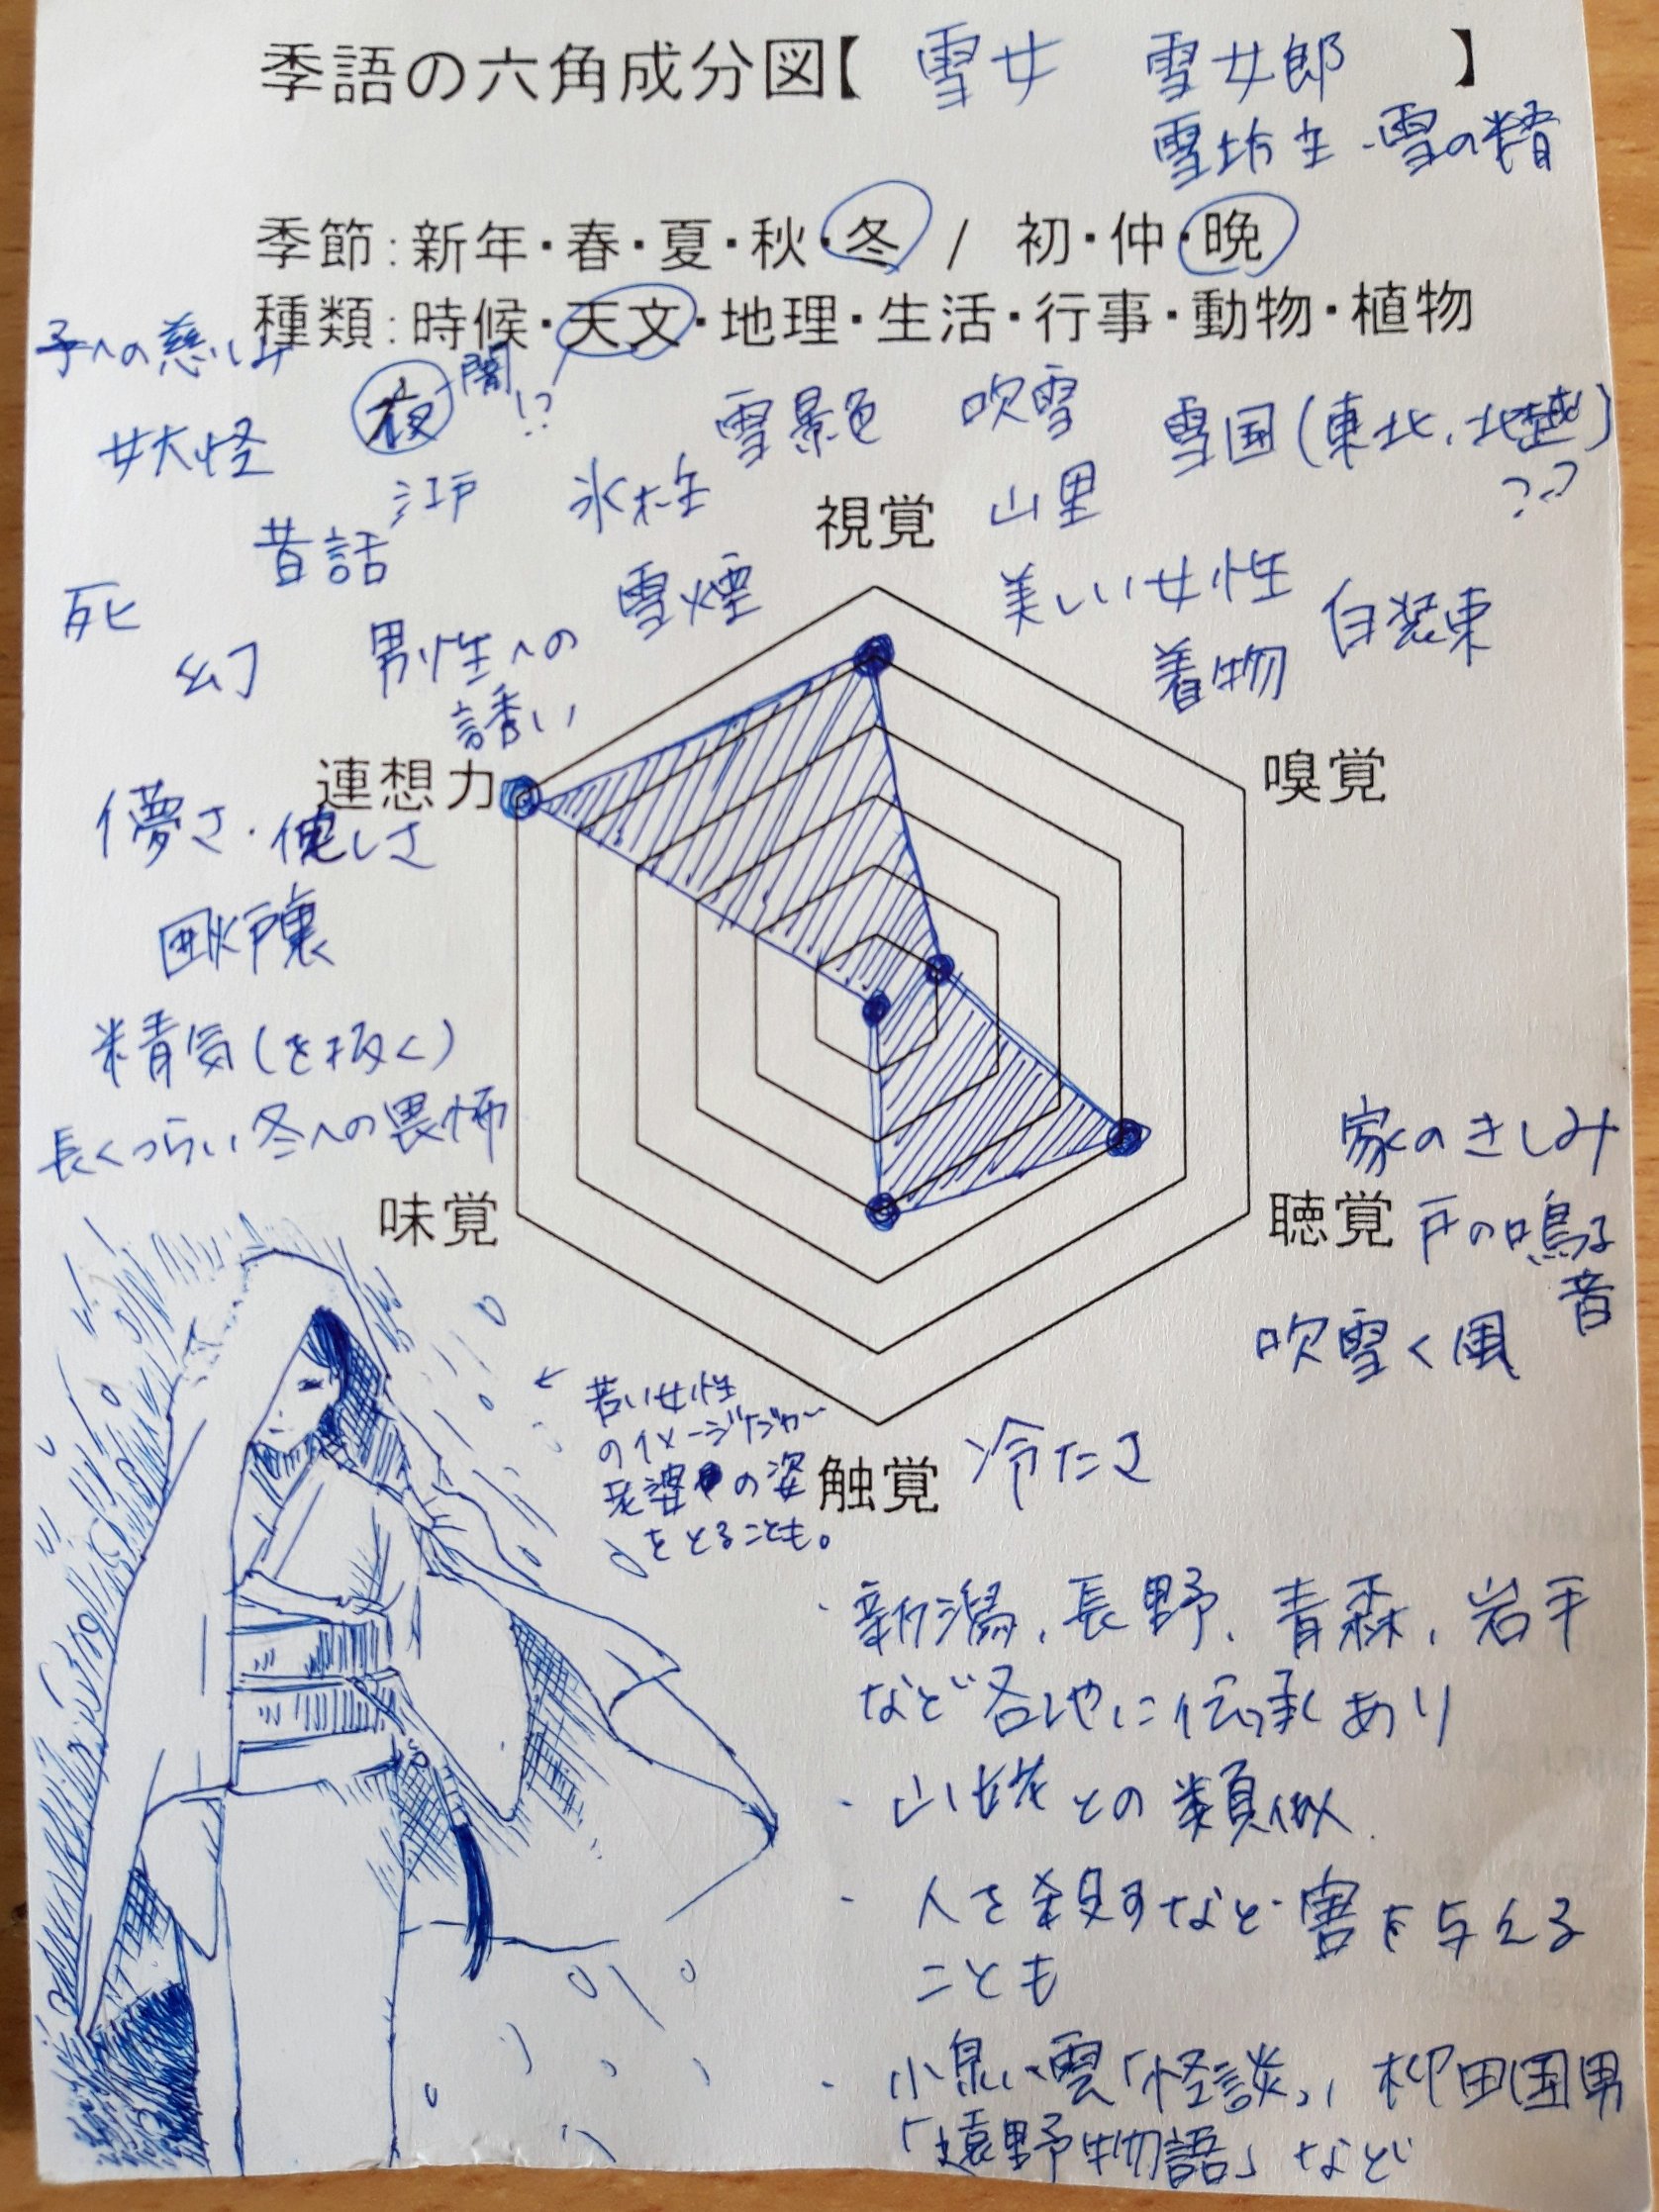 季語の六角成分図【 雪女　雪女郎　】
雪坊主・雪の精
季節：新年・春・夏・秋・冬 / 初・仲・晩
種類：時候・天文・地理・生活・行事・動物・植物
子への慈しみ
妖怪
夜 闇 !?
雪景色
吹雪
雪国(東北、北越)
??
江戸
氷柱
山里
視覚
昔話
雪煙
美しい女性
白装束
着物
死
幻
男性への
誘い
連想力
嗅覚
儚さ・愧しさ
囲炉裏
精気(を抜く)
長くつらい冬への畏怖
味覚
家のきしみ
聴覚
戸の鳴る
音
吹雪く風
← 若い女性
のイメージだが
老婆の姿
をとることも。
触覚
冷たさ
・新潟、長野、青森、岩手
など各地に伝承あり
・山姥との類似
・人を殺すなど害を与える
ことも
・小泉八雲「怪談」、柳田国男
「遠野物語」など